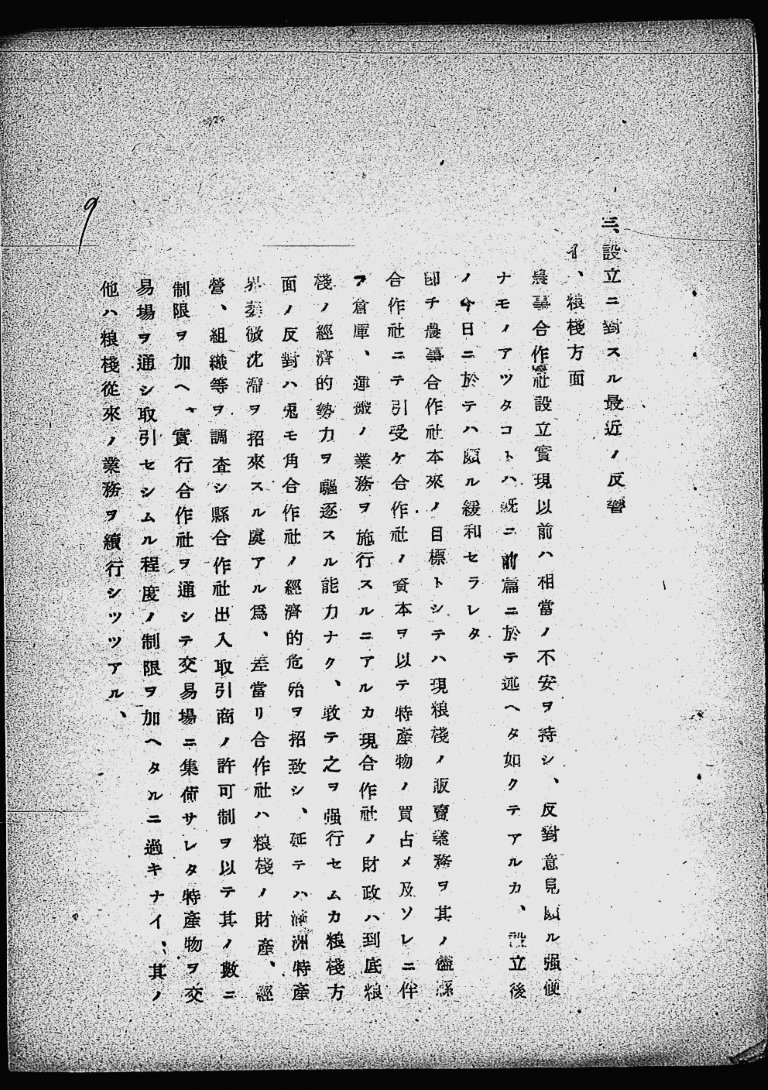 三、設立ニ對スル最近ノ反響
イ、粮棧方面
農事合作社設立實現以前ハ相當ノ不安ヲ持シ、反對意見頗ル强硬
ナモノアツタコトハ既ニ前篇ニ於テ述ヘタ如クテアルカ、設立後
ノ今日ニ於テハ頗ル緩和セラレタ
卽チ農事合作社本來ノ目標トシテハ現粮棧ノ販賣業務ヲ其ノ儘
合作社ニテ引受ケ合作社ノ資本ヲ以テ特產物ノ買占メ及ソレニ伴
フ倉庫、運搬ノ業務ヲ施行スルニアルカ現合作社ノ財政ハ到底粮
棧ノ經濟的勢力ヲ驅逐スル能力ナク、敢テ之ヲ强行セムカ粮棧方
面ノ反對ハ兎モ角合作社ノ經濟的危殆ヲ招致シ、延テハ滿洲特產
界萎微沈滯ヲ招來スル虞アル爲、差當リ合作社ハ粮棧ノ財產、經
營、組織等ヲ調査シ縣合作社出入取引商ノ許可制ヲ以テ其ノ數ニ
制限ヲ加ヘ、實行合作社ヲ通シテ交易場ニ集荷サレタ特產物ヲ交
易場ヲ通シ取引セシムル程度ノ制限ヲ加ヘタルニ過キナイ、其ノ
他ハ粮棧從來ノ業務ヲ續行シツツアル、
9